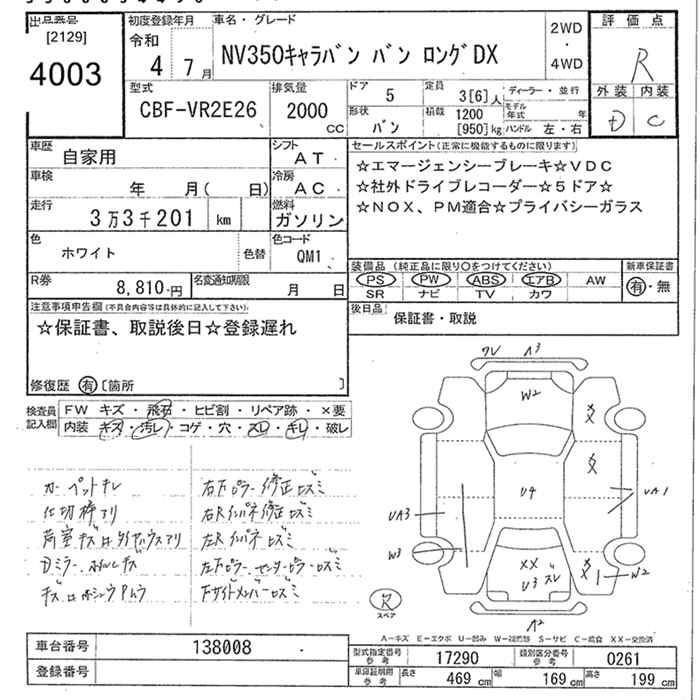 出品番号
[2129]
4003
初度登録年月
令和
4 7月
車名・グレード
NV350キャラバン バン ロングDX
2WD
・
4WD
評価点
R
外装 内装
D C
型式
CBF-VR2E26
排気量
2000
CC
ドア
5
定員
3[6]人
ディーラー・並行
形状
バン
積載
1200
[950]kg
モデル年式 年
ハンドル 左・右
車歴
自家用
シフト
AT
車検
年 月( 日)
冷房
AC
走行
3万3千201 km
燃料
ガソリン
色
ホワイト
色替
色コード
QM1
R券
8,810-円
名変通知期限
月 日
セールスポイント(正常に機能するものに限ります)
☆エマージェンシーブレーキ☆VDC
☆社外ドライブレコーダー☆5ドア☆
☆NOX、PM適合☆プライバシーガラス
装備品 (純正品に限り○をつけてください)
PS PW ABS エアB AW
SR ナビ TV カワ
新車保証書
有・無
後日品
保証書・取説
注意事項申告欄(不具合内容等は具体的に記入して下さい)
☆保証書、取説後日☆登録遅れ
修復歴 有 〔箇所 〕
検査員
記入欄
FW キズ・飛石・ヒビ割・リペア跡・×要
内装 キズ・汚レ・コゲ・穴・スレ・キレ・破レ
カーペットキレ
仕切枠アリ
右R インパネ修正ズミ
左R インパネ ズミ
下サイドメンバー ズミ
ワレ A3
W2
U4
UA3
W3
UA1
XX
U3 スレ
W2
A2
R
スペア
A-キズ E-エクボ U-凹み W-補修跡 S-サビ C-腐食 XX-交換済
車台番号
138008
登録番号
型式指定番号
参考
17290
類別区分番号
参考
0261
車庫証明用
参考
長さ 469 cm 幅 169 cm 高さ 199 cm